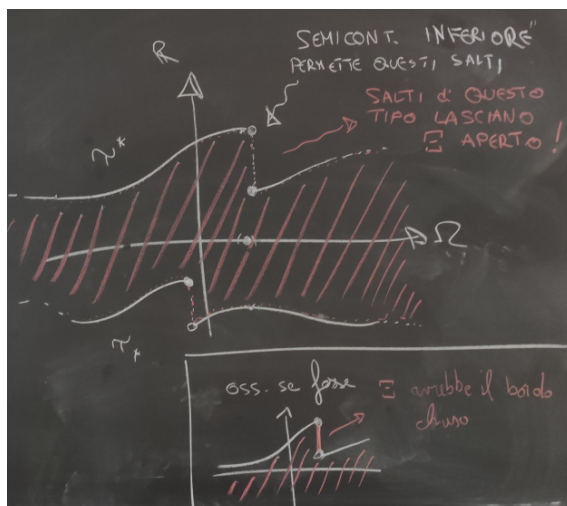 R
SEMICONT. INFERIORE"
PERMETTE QUESTI SALTI
SALTI di QUESTO
TIPO LASCIANO
Ξ APERTO!
τ*
Ω
τ*
OSS. se fosse
Ξ avrebbe il bordo
chiuso